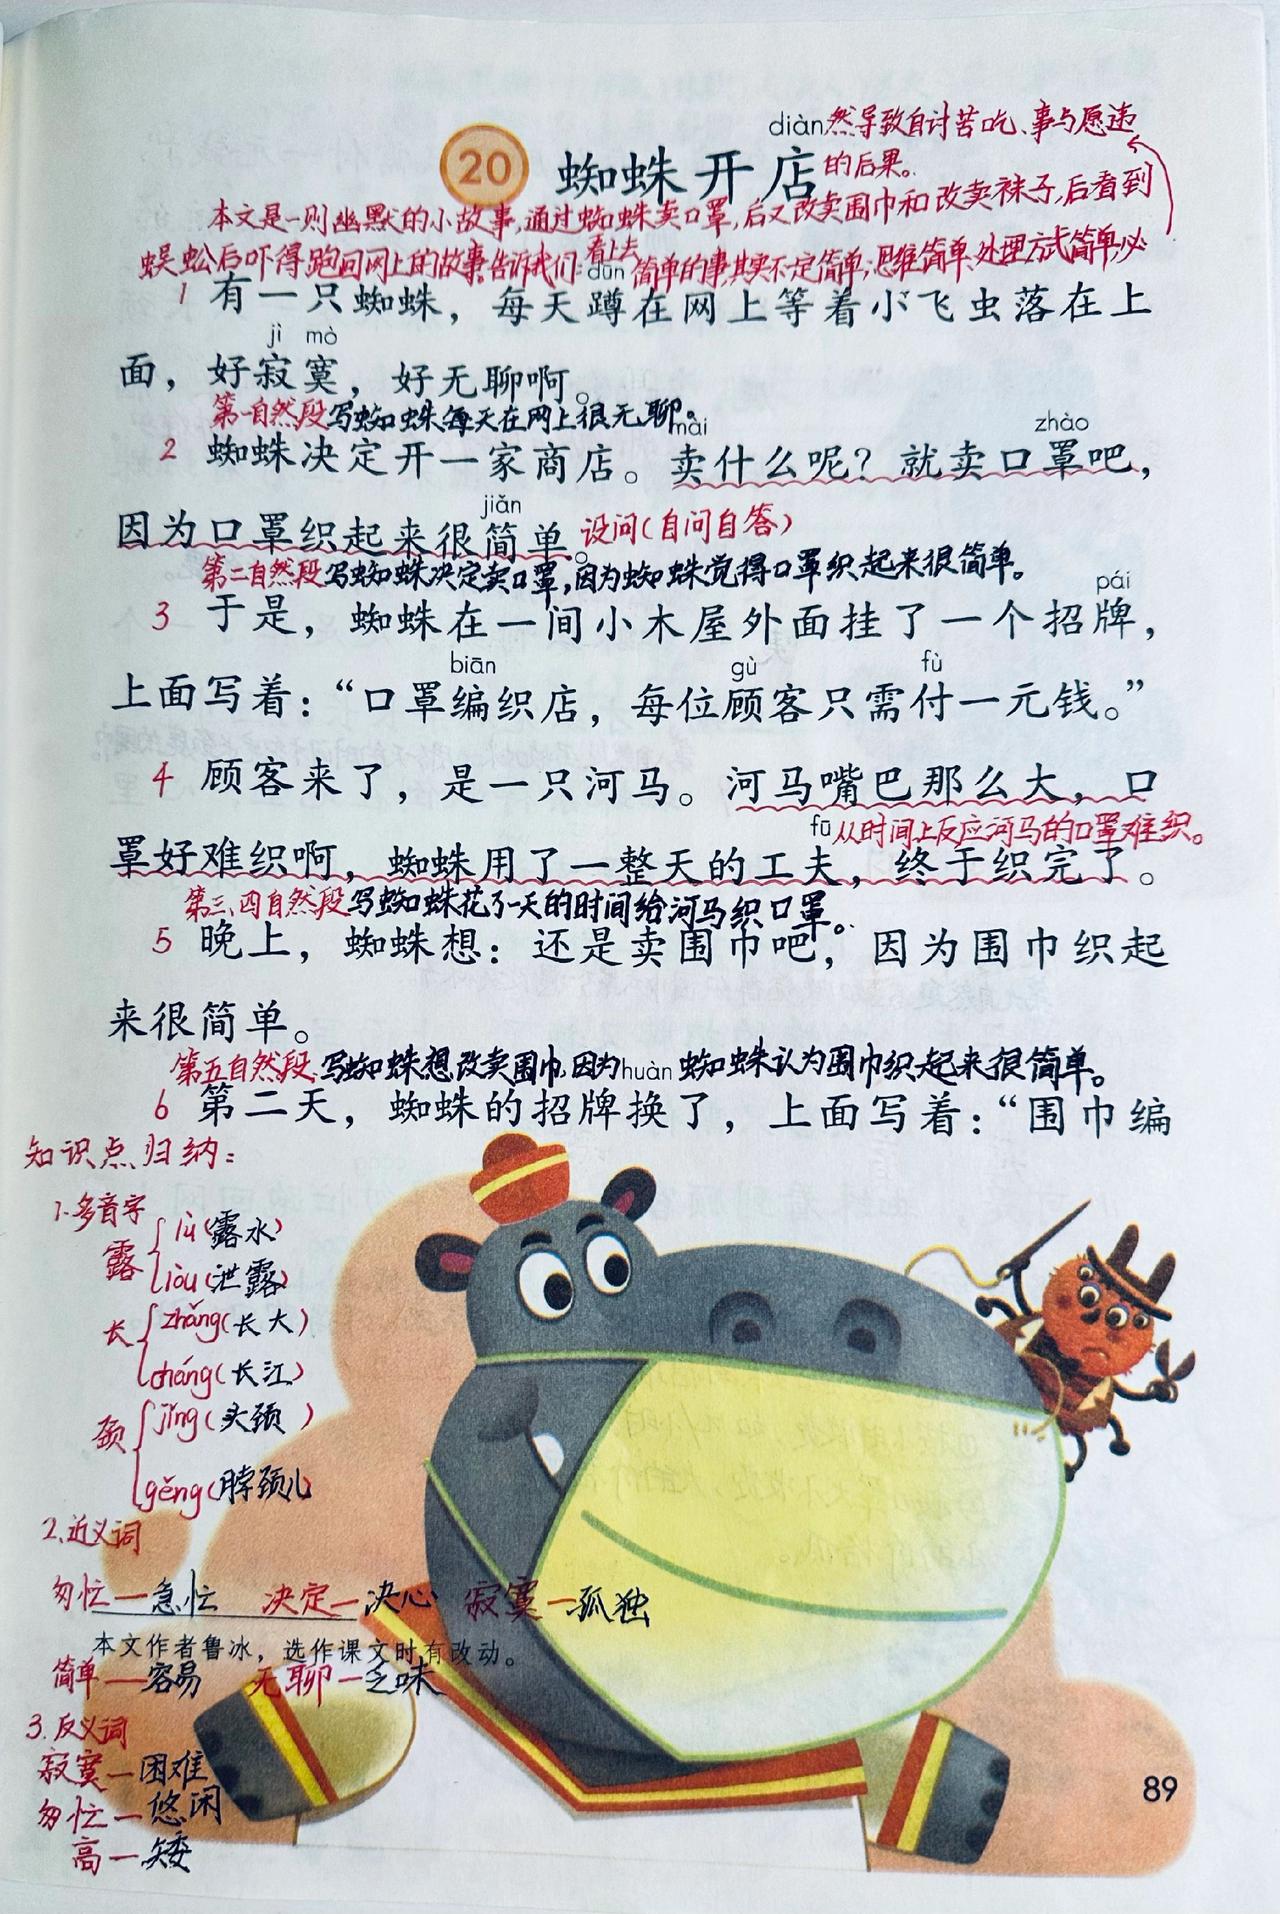 diàn然导致自讨苦吃、事与愿违
20 蜘蛛开店
的后果。
本文是一则幽默的小故事,通过蜘蛛卖口罩,后又改卖围巾和改卖袜子,后看到
蜈蚣后吓得跑回网上的故事。告诉我们:看上去简单的事其实不一定简单;思维简单、处理方式简单,必
dūn
1 有一只蜘蛛，每天蹲在网上等着小飞虫落在上
jì mò
面，好寂寞，好无聊啊。
第一自然段写蜘蛛每天在网上很无聊。
mài zhào
2 蜘蛛决定开一家商店。卖什么呢？就卖口罩吧，
jiǎn
因为口罩织起来很简单。设问(自问自答)
第二自然段写蜘蛛决定卖口罩,因为蜘蛛觉得口罩织起来很简单。
pái
3 于是，蜘蛛在一间小木屋外面挂了一个招牌，
biān gù fù
上面写着：“口罩编织店，每位顾客只需付一元钱。”
4 顾客来了，是一只河马。河马嘴巴那么大，口
fū 从时间上反应河马的口罩难织。
罩好难织啊，蜘蛛用了一整天的工夫，终于织完了。
第三、四自然段写蜘蛛花了一天的时间给河马织口罩。
5 晚上，蜘蛛想：还是卖围巾吧，因为围巾织起
来很简单。
第五自然段写蜘蛛想改卖围巾,因为蜘蛛认为围巾织起来很简单。
huàn
6 第二天，蜘蛛的招牌换了，上面写着：“围巾编
知识点归纳:
1.多音字
露 lù(露水)
lòu(泄露)
长 zhǎng(长大)
cháng(长江)
颈 jǐng(头颈)
gěng(脖颈儿
2.近义词
匆忙—急忙 决定—决心 寂寞—孤独
本文作者鲁冰，选作课文时有改动。
简单—容易 无聊—乏味
3.反义词
寂寞—困难
匆忙—悠闲
高—矮
89